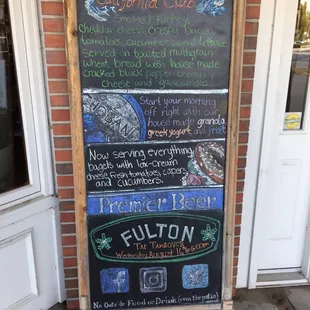 California Club
Smoked turkey,
cheddar cheese, crispy bacon,
tomatoes, cucumber and lettuce
served on toasted multigrain
wheat bread with house made
cracked black pepper
cheese and guacamole
Start your morning
off right with our
house made granola,
greek yogurt and fruit
Now serving everything
bagels with lox - cream
cheese, fresh tomatoes, capers
and cucumbers.
Premier Beer
FULTON
Tap Takeover
Wednesday August 16 @ 6:00
No Outside Food or Drink (even the patio)